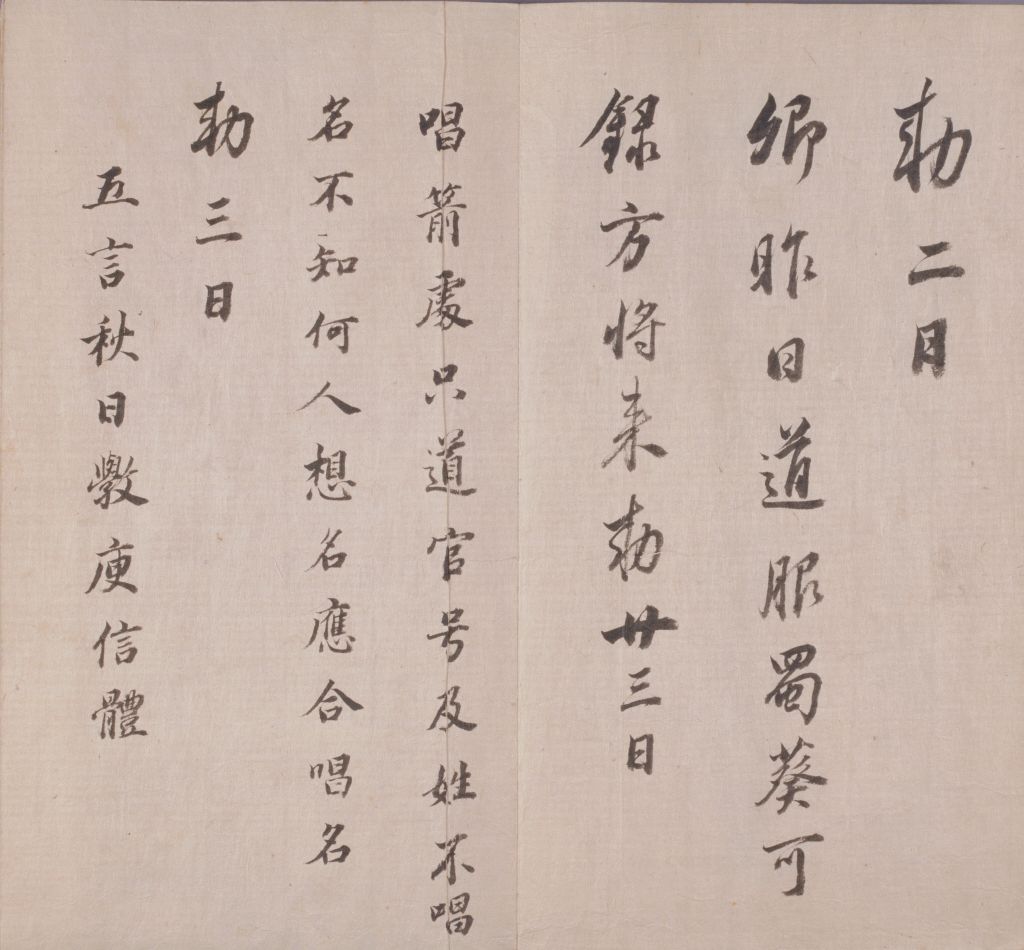 勅二月
卿昨日道服蜀葵可
録方将来勅廿三日
唱箭處只道官号及姓不唱
名不知何人想名應合唱名
勅三日
五言秋日斆庾信體